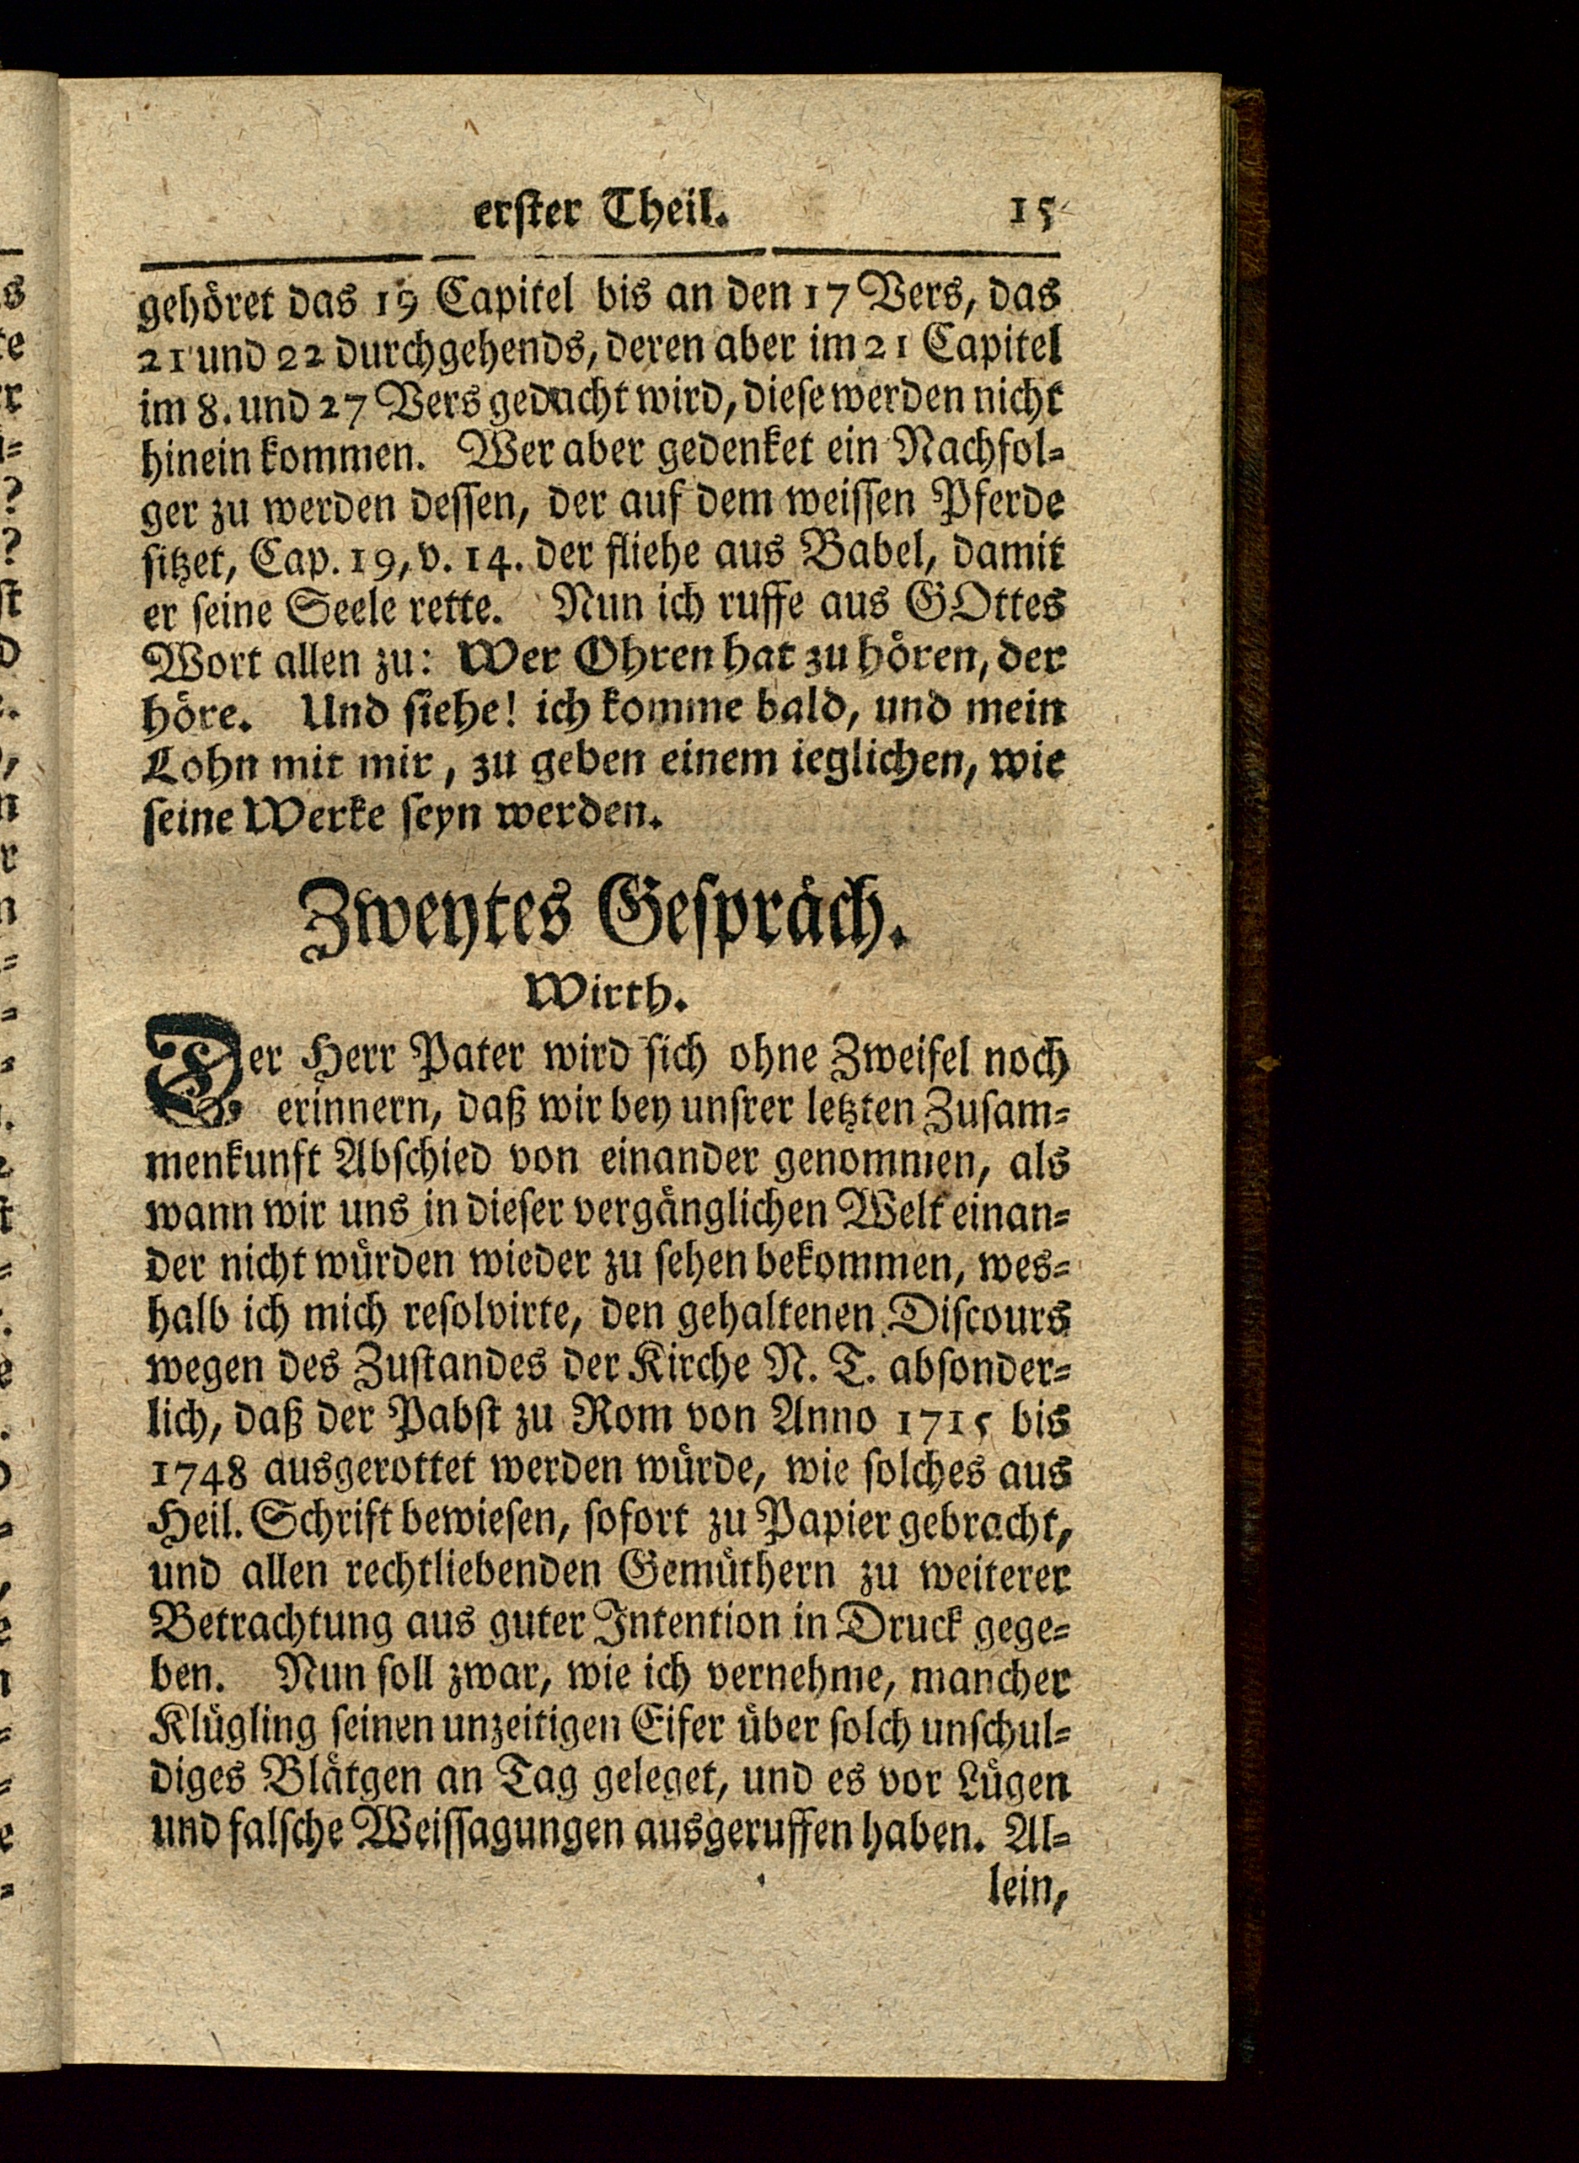 erster Theil. 15
gehöret das 19 Capitel bis an den 17 Vers, das
21 und 22 durchgehends, deren aber im 21 Capitel
im 8. und 27 Vers gedacht wird, diese werden nicht
hinein kommen. Wer aber gedenket ein Nachfol=
ger zu werden dessen, der auf dem weissen Pferde
sitzet, Cap. 19, v. 14. der fliehe aus Babel, damit
er seine Seele rette. Nun ich ruffe aus GOttes
Wort allen zu: Wer Ohren hat zu hören, der
höre. Und siehe! ich komme bald, und mein
Lohn mit mir, zu geben einem ieglichen, wie
seine Werke seyn werden.
Zweytes Gespräch.
Wirth.
Der Herr Pater wird sich ohne Zweifel noch
erinnern, daß wir bey unsrer letzten Zusam=
menkunft Abschied von einander genommen, als
wann wir uns in dieser vergänglichen Welt einan=
der nicht würden wieder zu sehen bekommen, wes=
halb ich mich resolvirte, den gehaltenen Discours
wegen des Zustandes der Kirche N. T. absonder=
lich, daß der Pabst zu Rom von Anno 1715 bis
1748 ausgerottet werden würde, wie solches aus
Heil. Schrift bewiesen, sofort zu Papier gebracht,
und allen rechtliebenden Gemüthern zu weiterer
Betrachtung aus guter Intention in Druck gege=
ben. Nun soll zwar, wie ich vernehme, mancher
Klügling seinen unzeitigen Eifer über solch unschul=
diges Blätgen an Tag geleget, und es vor Lügen
und falsche Weissagungen ausgeruffen haben. Al=
lein,